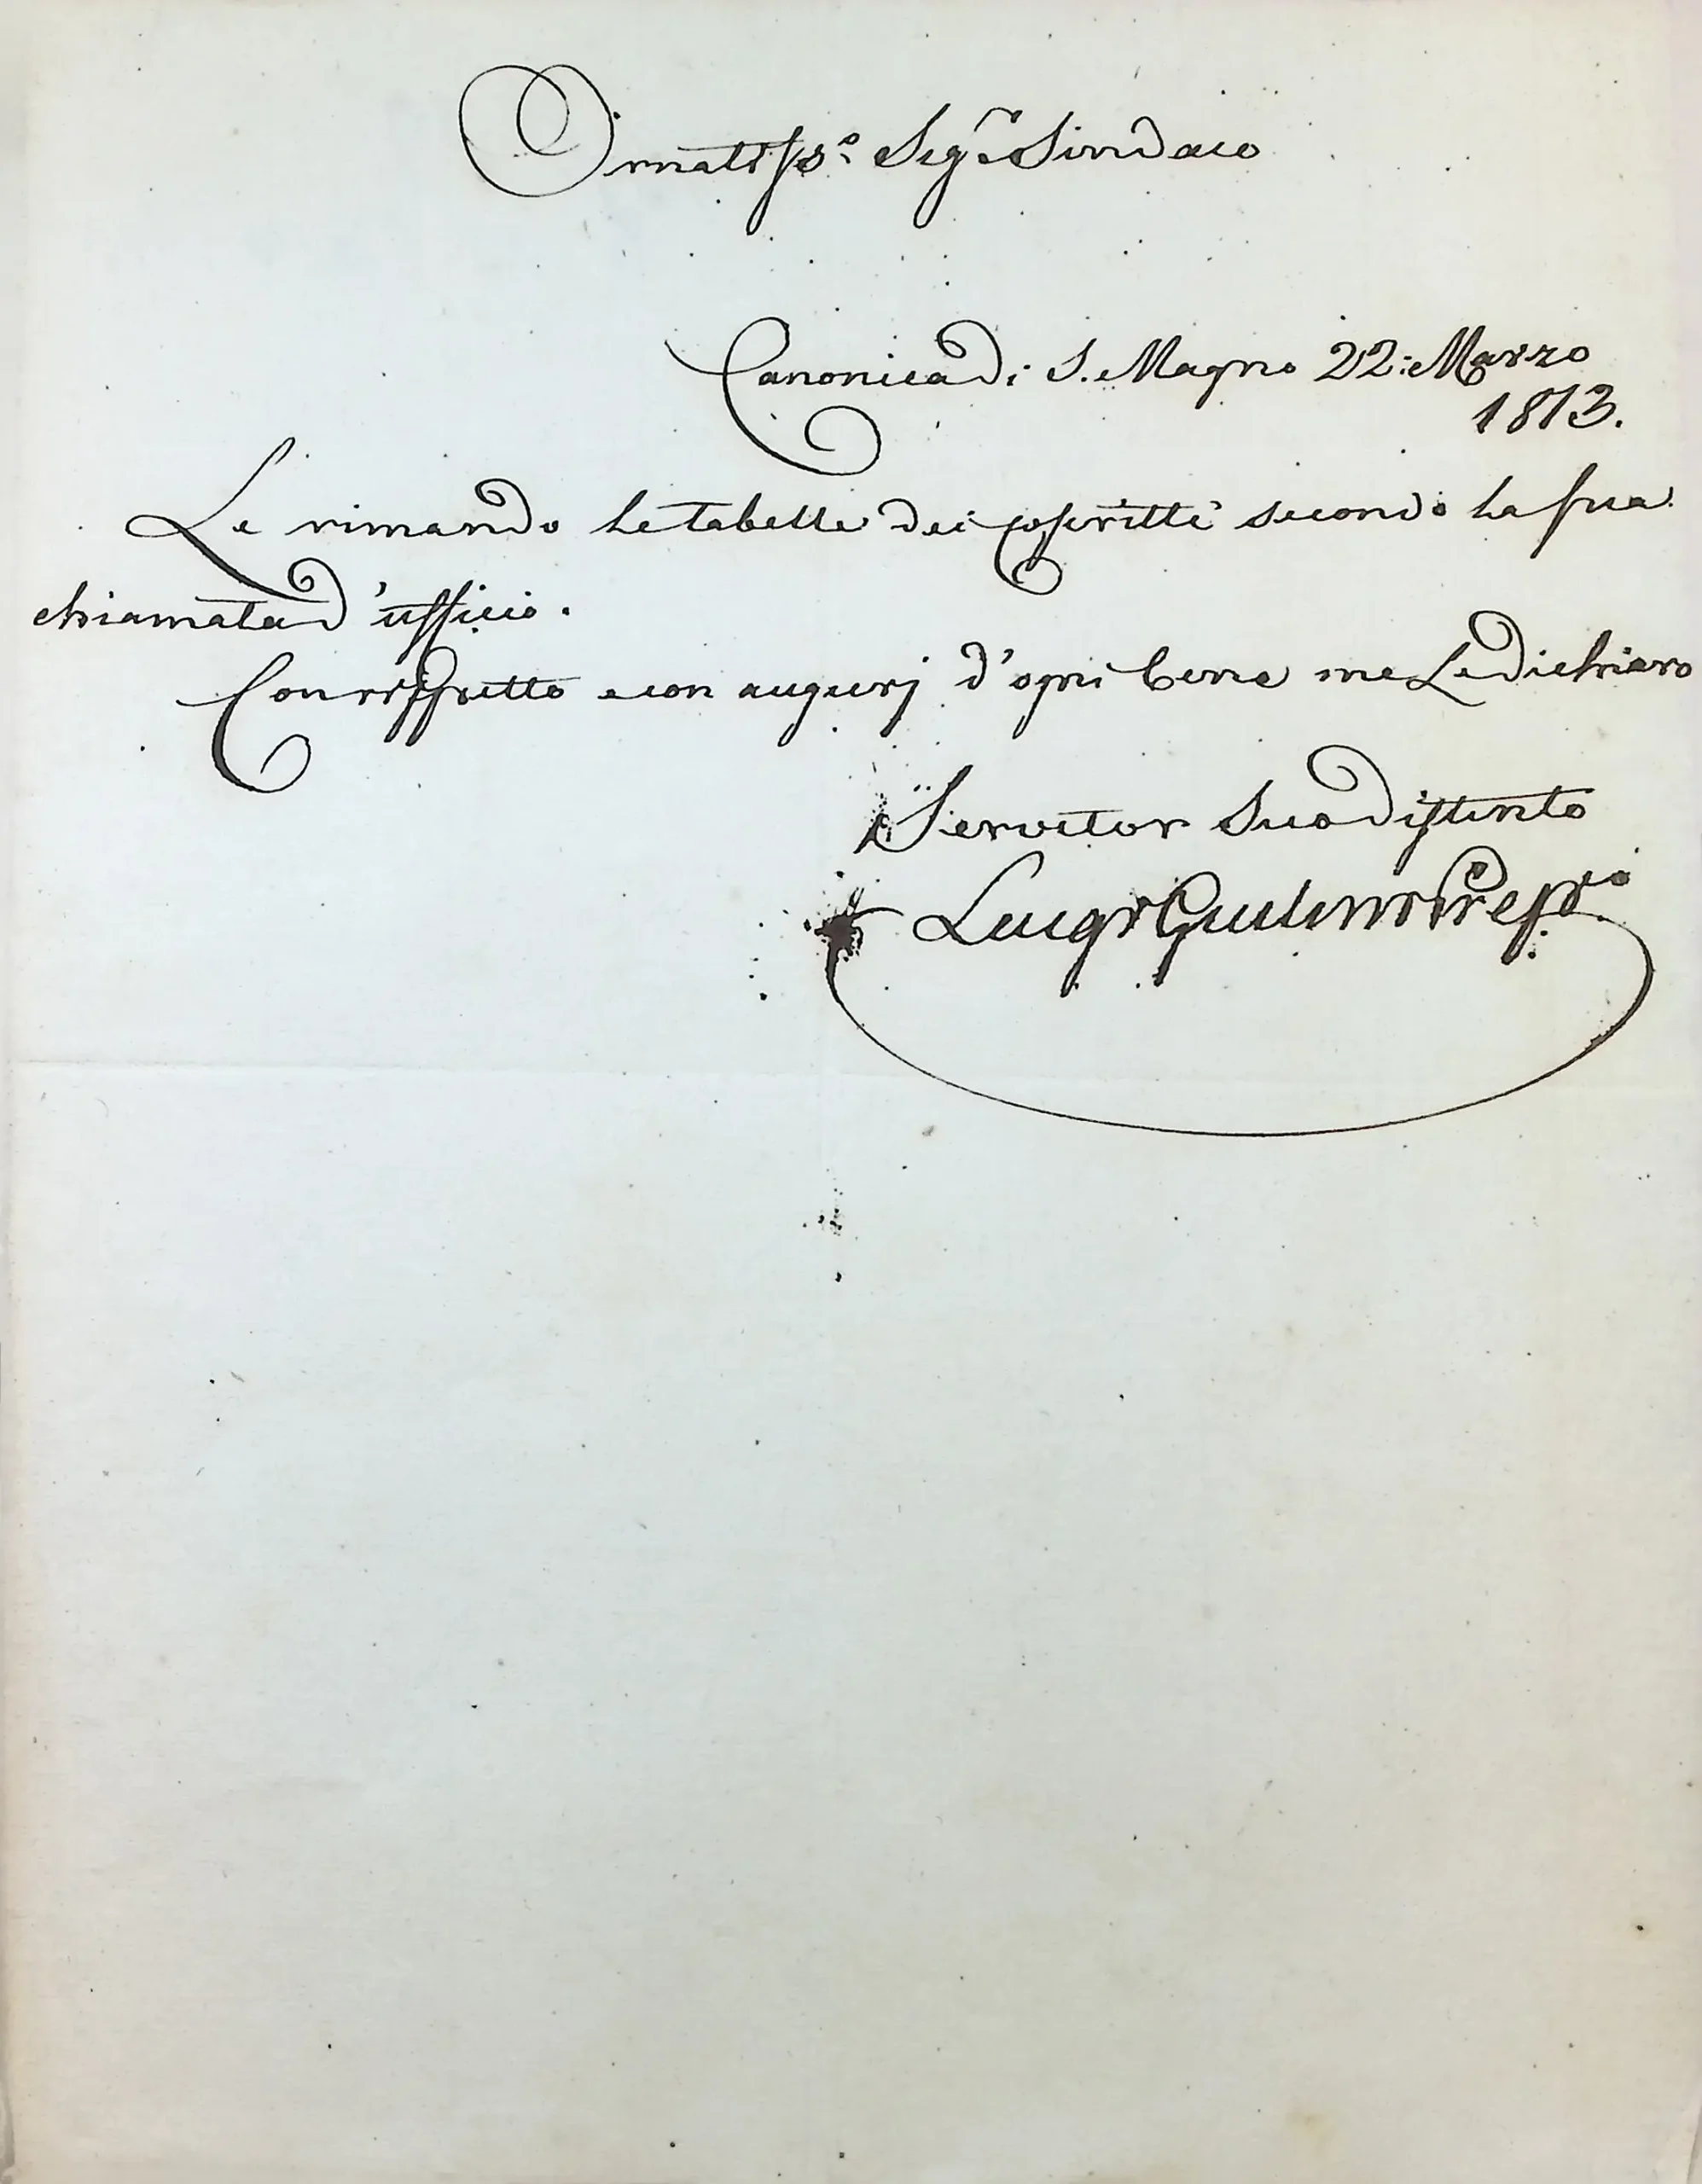 Ornatisso. Sigr. Sindaco
Canonica di S. Magno 22: Marzo
1813.
Le rimando le tabelle dei coscritti secondo la sua
chiamata d'ufficio.
Con rispetto e con augurj d'ogni bene me Le dichiaro
Servitor Suo distinto
Luigi